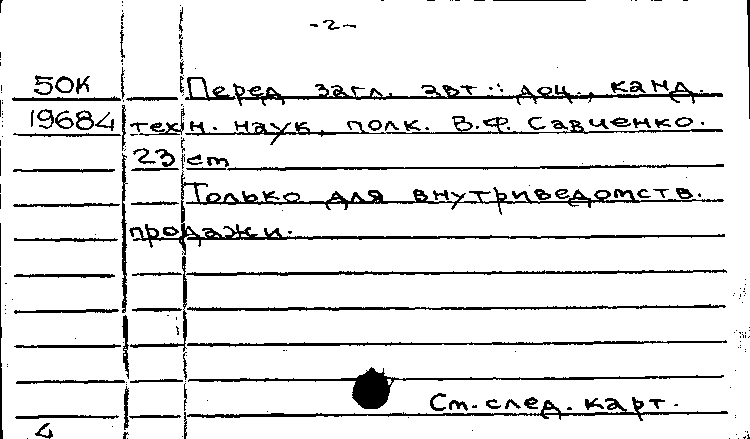 -2-
50К Перед загл. авт.: доц., канд.
19684 техн. наук, полк. В.Ф. Савченко.
23 cm
Только для внутриведомств.
продажи.
См. след. карт.
4